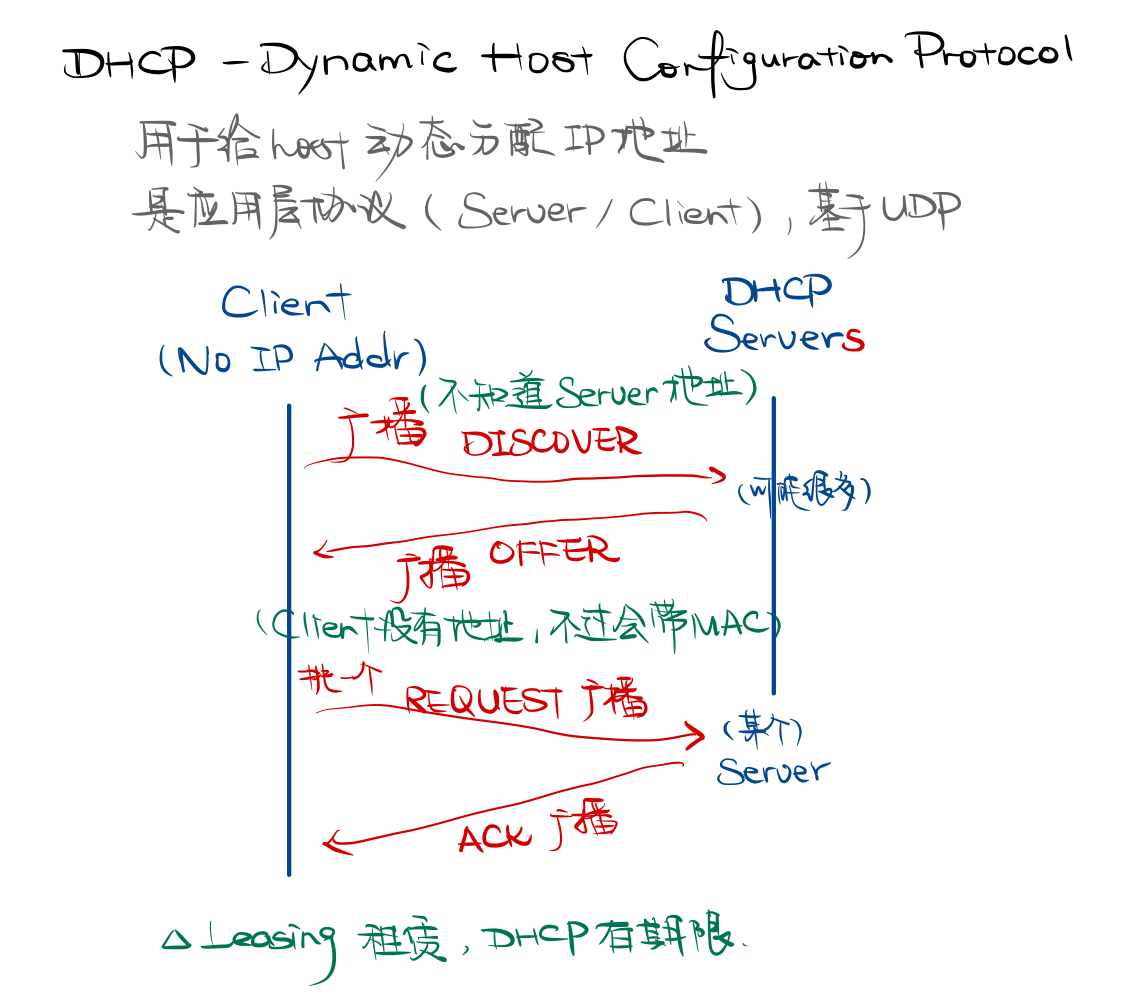 DHCP - Dynamic Host Configuration Protocol
用于给host 动态分配 IP 地址
是应用层协议 ( Server / Client ) , 基于 UDP
Client
(No IP Addr)
DHCP
Servers
(不知道 Server 地址)
广播 DISCOVER
(可能很多)
广播 OFFER
(Client没有地址, 不过会带MAC)
挑一个
REQUEST 广播
(某个)
Server
ACK 广播
△ Leasing 租赁, DHCP 有期限.